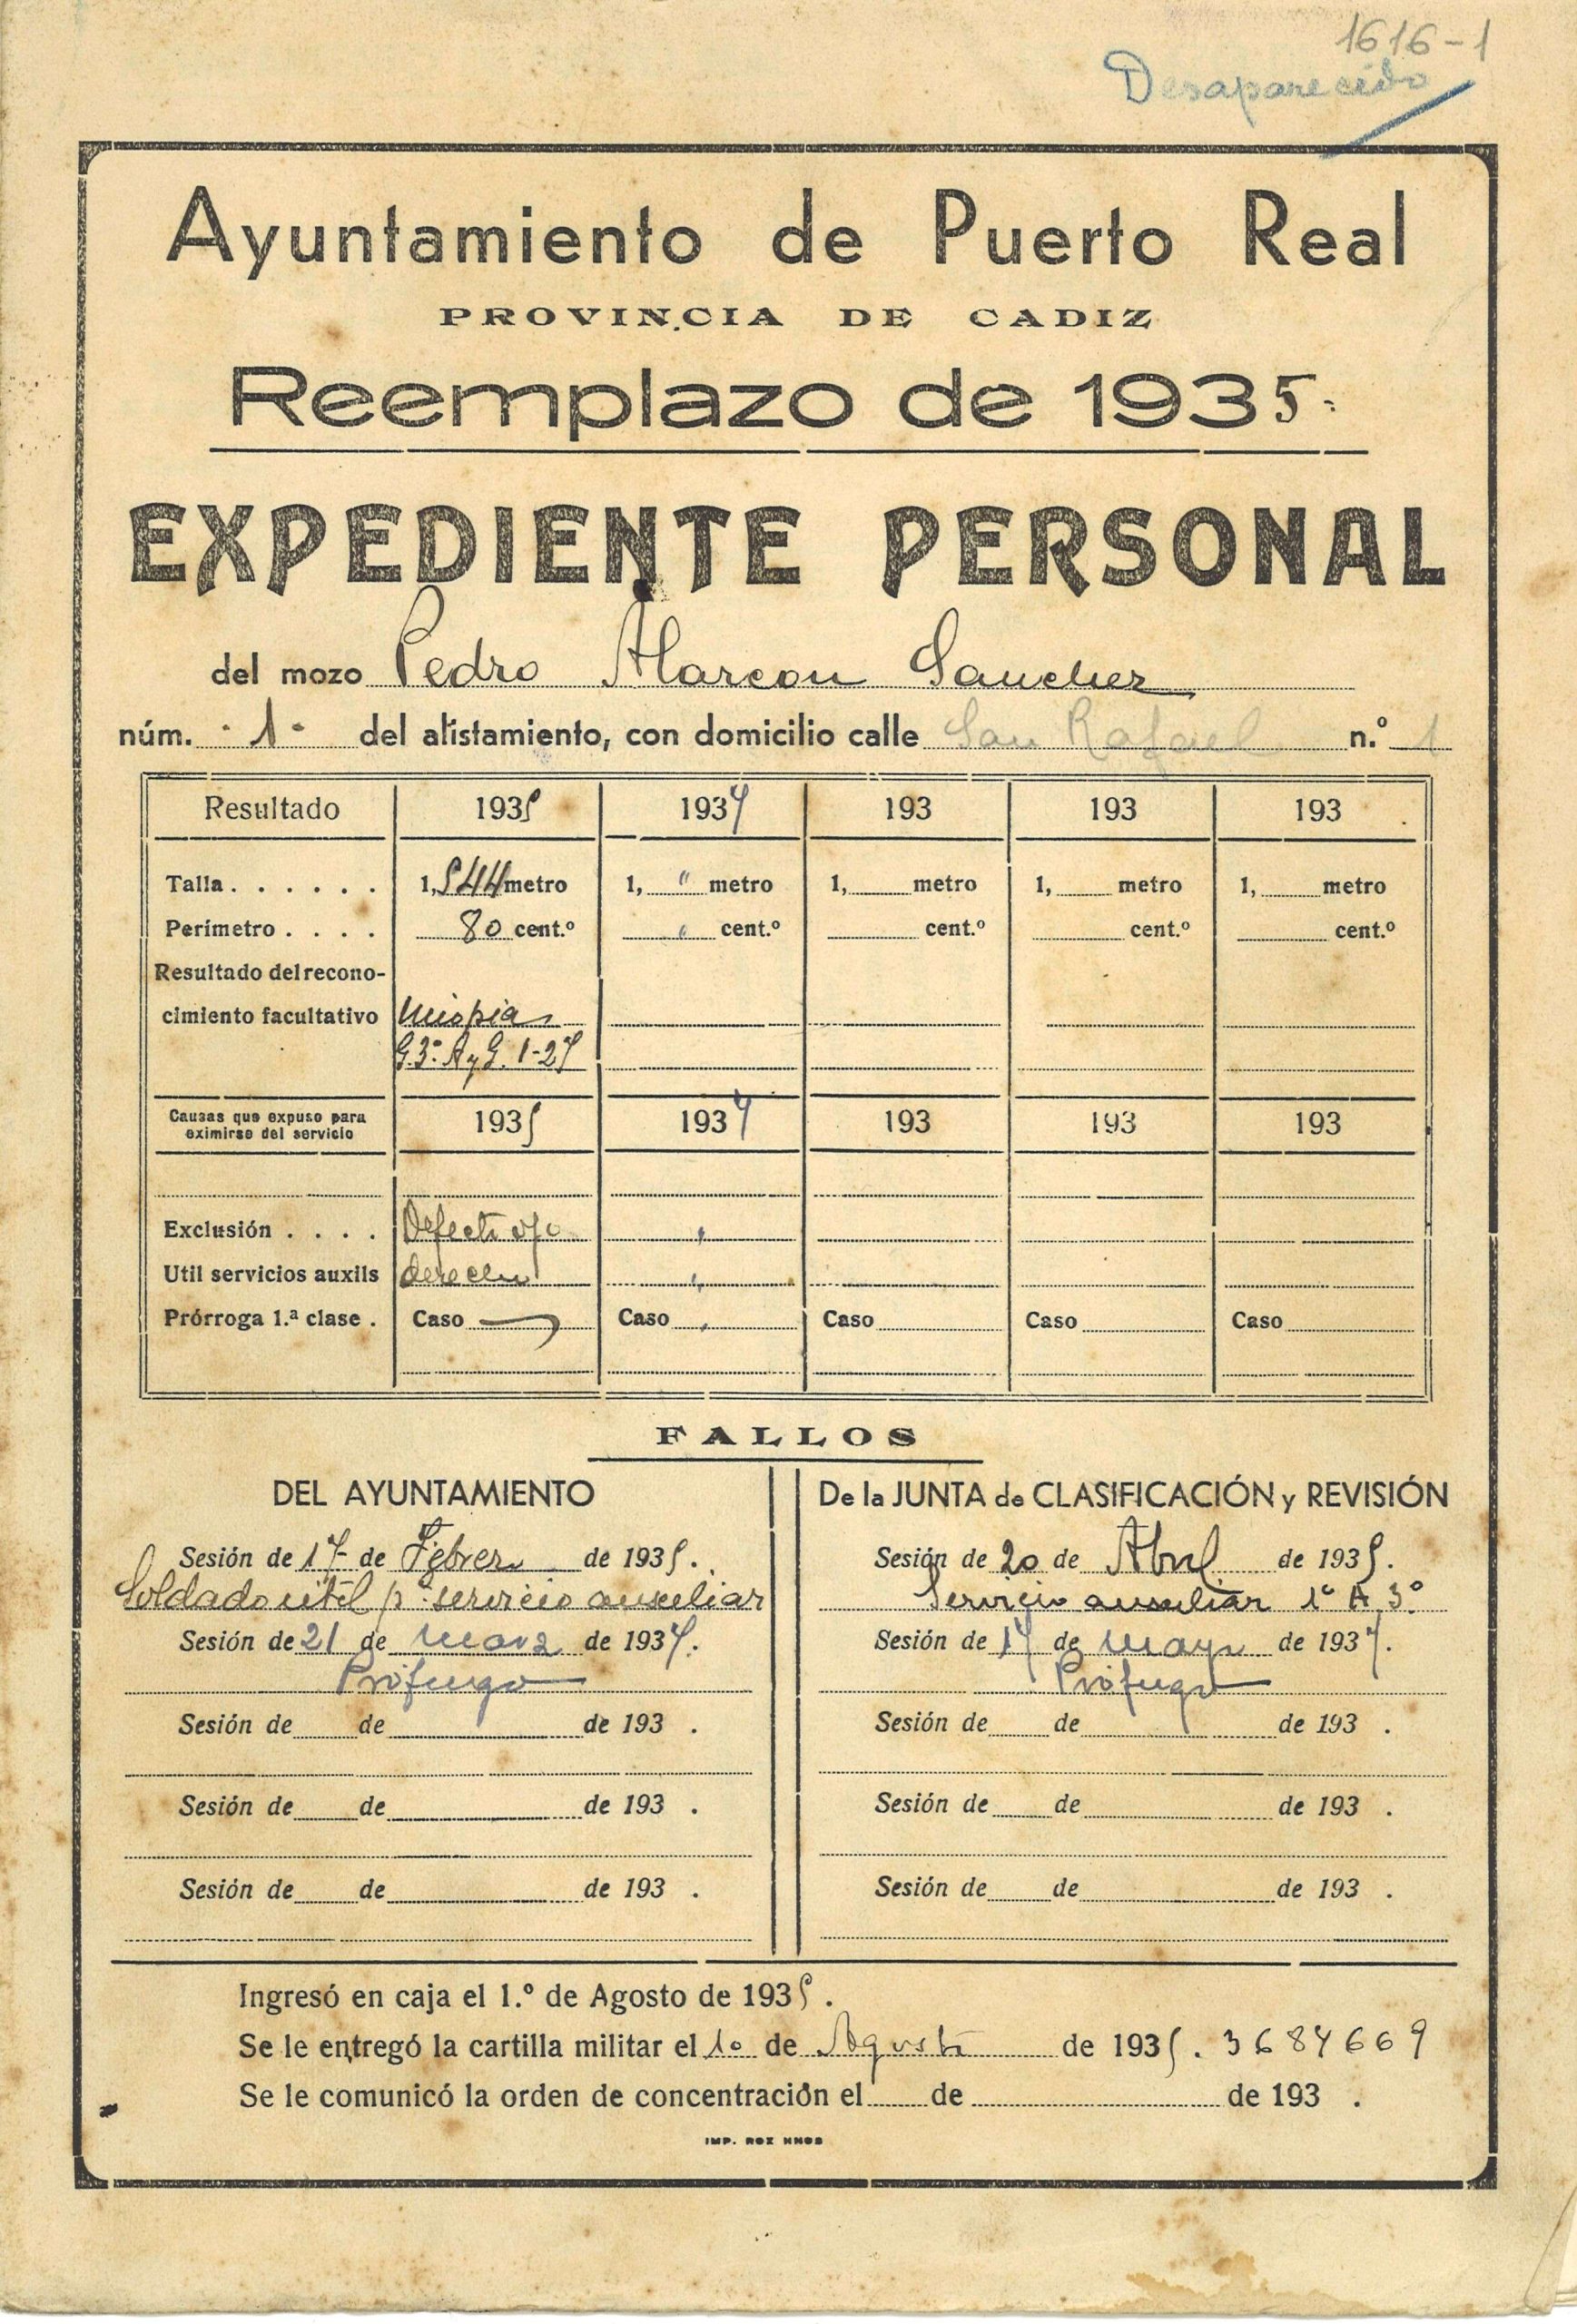 1616-1
Desaparecido
Ayuntamiento de Puerto Real
PROVINCIA DE CADIZ
Reemplazo de 1935.
EXPEDIENTE PERSONAL
del mozo Pedro Alarcon Sanchez
núm. 1 del alistamiento, con domicilio calle San Rafael n.º 1
Resultado 1935 1937 193 193 193
Talla 1,544 metro 1, " metro 1, metro 1, metro 1, metro
Perímetro 80 cent.º " cent.º cent.º cent.º cent.º
Resultado del recono-
cimiento facultativo Miopia
G. 3º A y G. 1-27
Causas que expuso para
eximirse del servicio 1935 1937 193 193 193
Exclusión Defecto ojo "
Util servicios auxils derecho "
Prórroga 1.ª clase . Caso Caso Caso Caso Caso
FALLOS
DEL AYUNTAMIENTO
Sesión de 17 de Febrero de 1935.
Soldado util p.ª servicio auxiliar
Sesión de 21 de Marzo de 1937.
Prófugo
Sesión de de de 193 .
Sesión de de de 193 .
Sesión de de de 193 .
De la JUNTA de CLASIFICACIÓN y REVISIÓN
Sesión de 20 de Abril de 1935.
Servicio auxiliar 1º A 3º
Sesión de 17 de Mayo de 1937.
Prófugo
Sesión de de de 193 .
Sesión de de de 193 .
Sesión de de de 193 .
Ingresó en caja el 1.º de Agosto de 1935.
Se le entregó la cartilla militar el 10 de Agosto de 1935. 3687669
Se le comunicó la orden de concentración el de de 193 .
IMP. ROZ HNOS